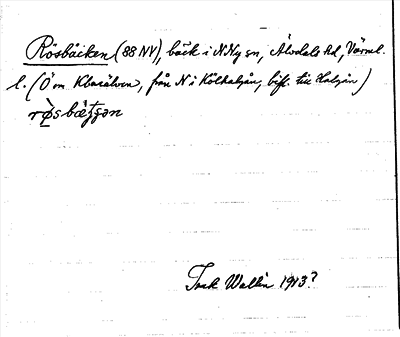 Rösbäcken (88 NV), bäck i N Ny sn, Älvdals hd, Värml.
l. (Ö om Klarälven, från N i Kölhalgån, bifl. till Halgån)
rø̀sbæʈʂən
Tack Wallin 1913?